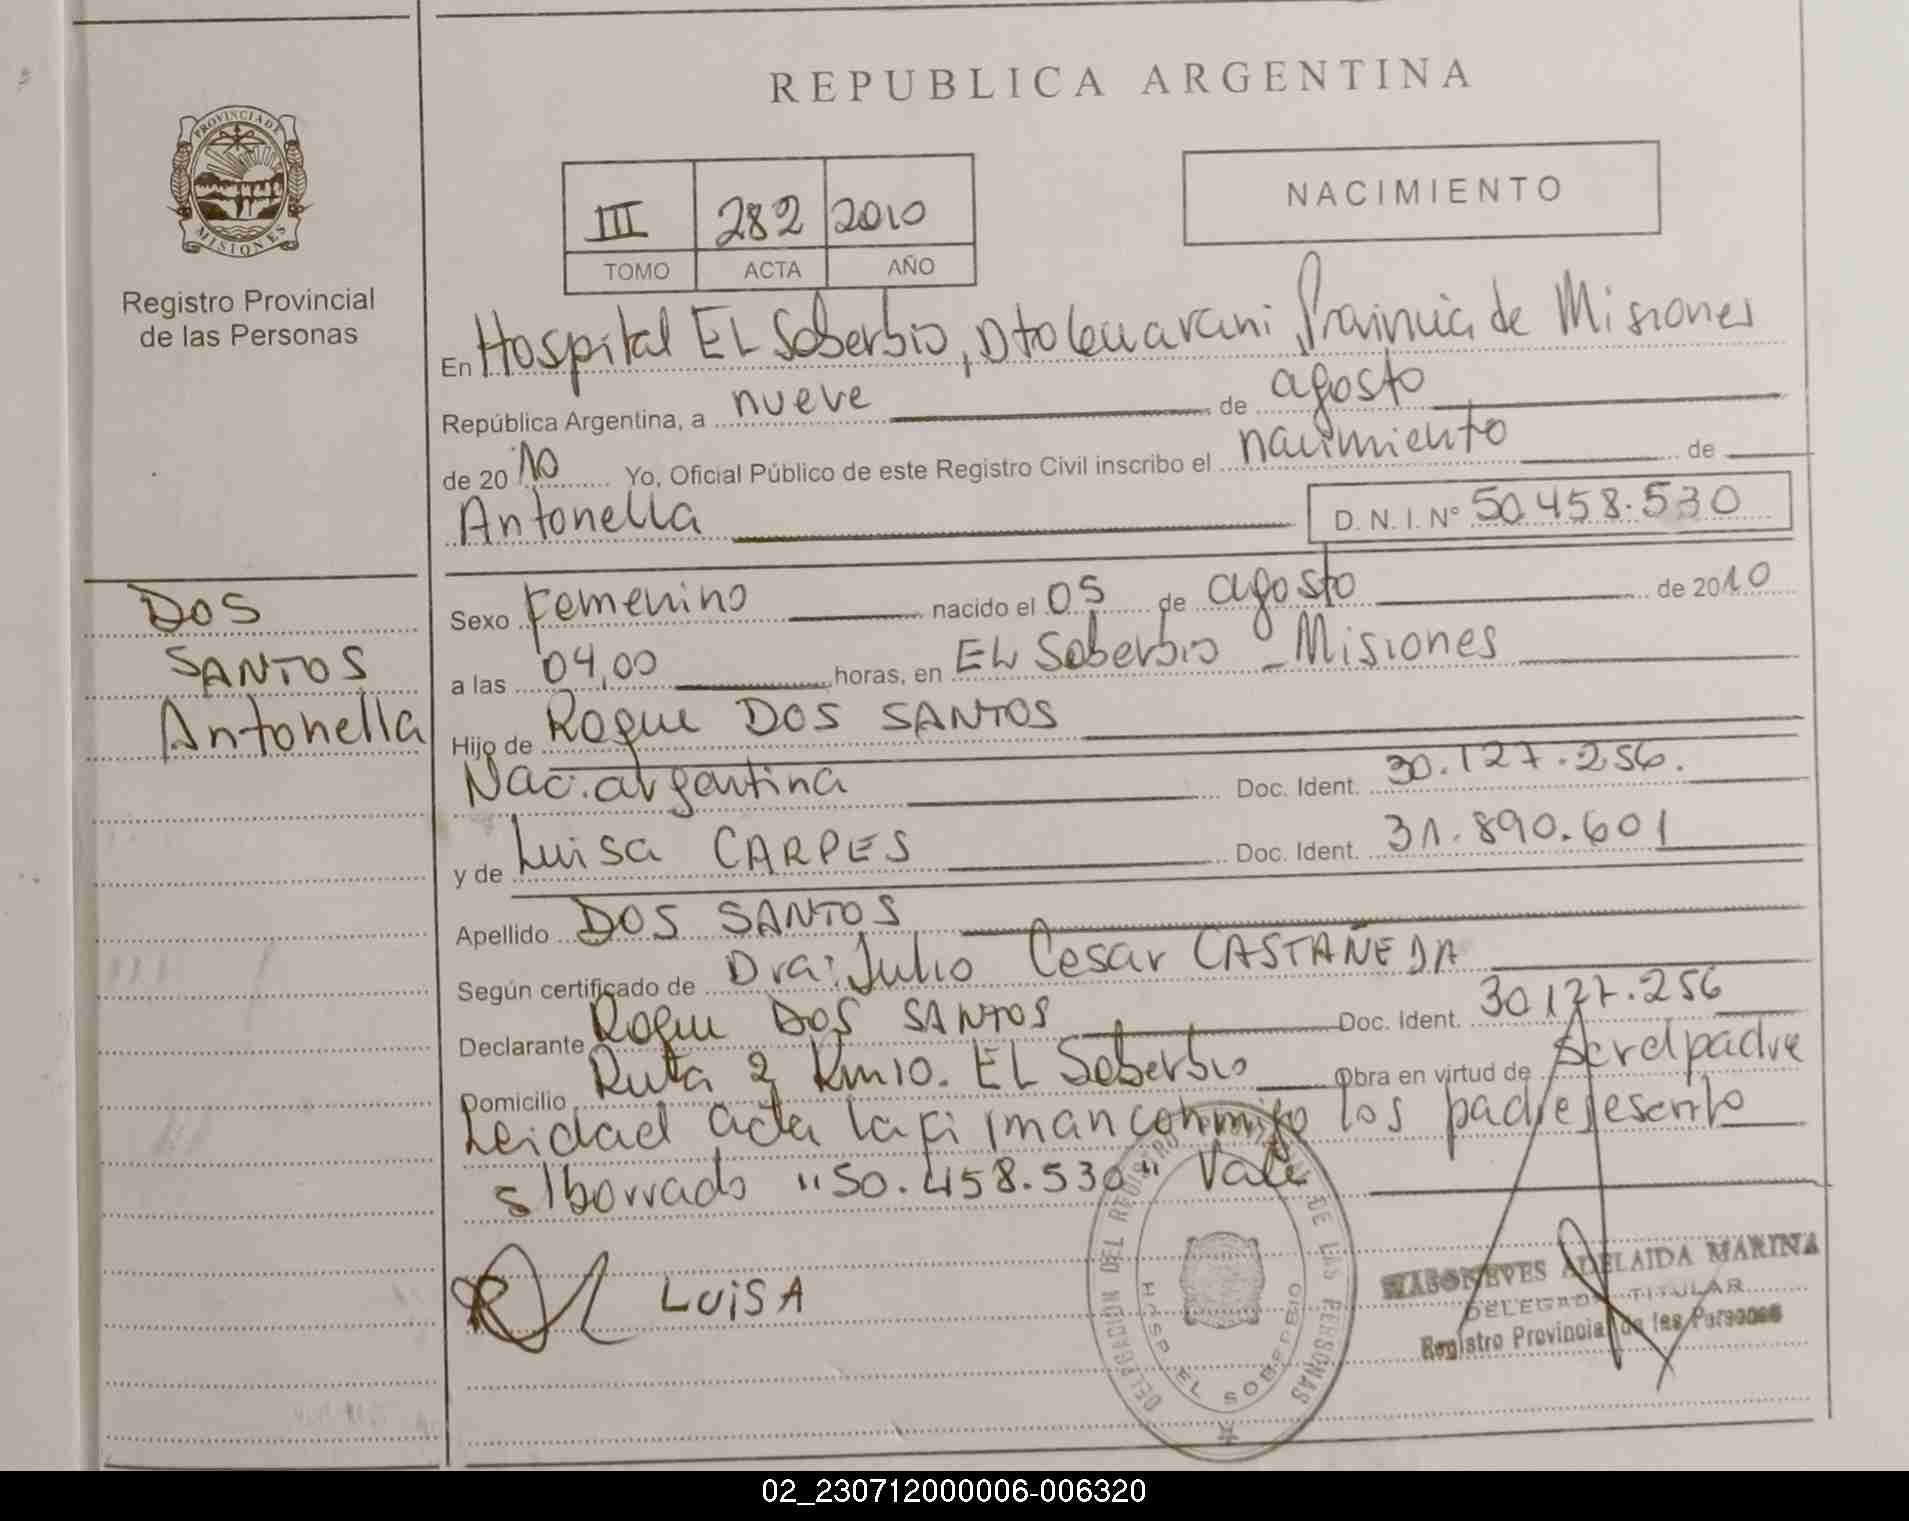 REPUBLICA ARGENTINA
PROVINCIA DE
MISIONES
Registro Provincial
de las Personas
III 282 2010
TOMO ACTA AÑO
NACIMIENTO
En Hospital EL Soberbio, Dto Guarani, Provincia de Misiones
República Argentina, a nueve de agosto
de 2010 Yo, Oficial Público de este Registro Civil inscribo el nacimiento de
Antonella D. N. I. Nº 50.458.530
DOS
SANTOS
Antonella
Sexo Femenino nacido el 05 de agosto de 2010
a las 04,00 horas, en EL Soberbio - Misiones
Hijo de Roque DOS SANTOS
Nac. argentina Doc. Ident. 30.127.256.
y de Luisa CARPES Doc. Ident. 31.890.601
Apellido DOS SANTOS
Según certificado de Dra: Julio Cesar CASTAÑEDA
Declarante Roque DOS SANTOS Doc. Ident. 30127.256
Domicilio Ruta 2 Km10. EL Soberbio Obra en virtud de ser el padre
Leida el acta la firman conmigo los padres escrito
s/borrado "50.458.530" Vale
LUISA
DELEGACION DEL REGISTRO PROVINCIAL DE LAS PERSONAS
HOSP. EL SOBERBIO
ADELAIDA MARINA
DELEGADA TITULAR
Registro Provincial de las Personas
02_230712000006-006320